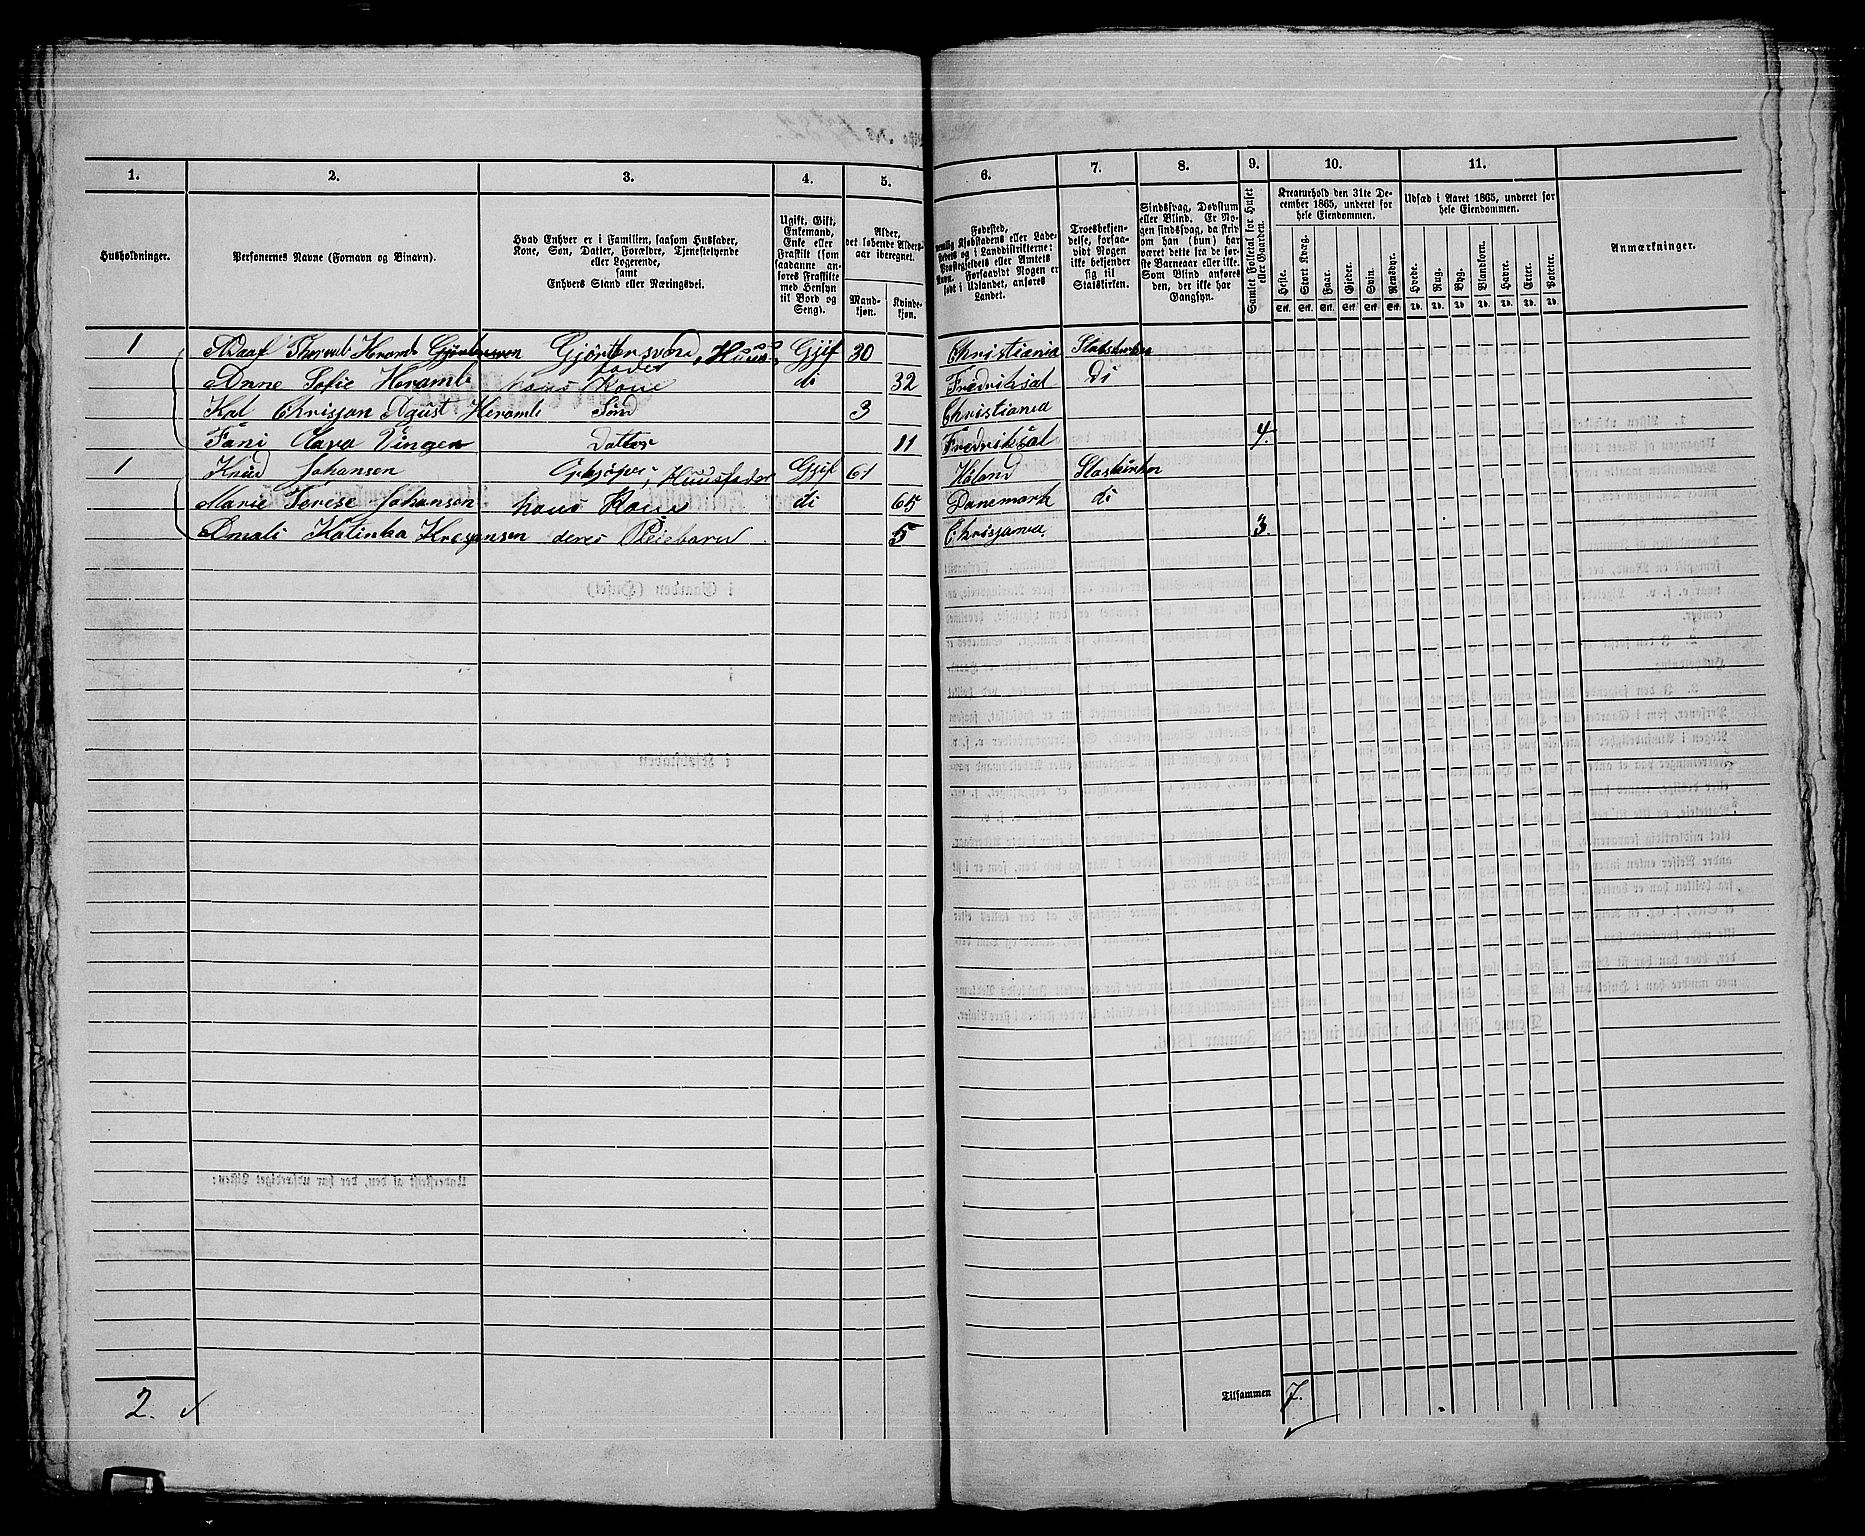 1. 2. 3. 4. 5. 6. 7. 8. 9. 10. 11.
Husholdninger.
Personernes Navne (Fornavn og Binavn).
Hvad Enhver er i Familien, saasom Husfader,
Kone, Søn, Datter, Forældre, Tjenestetyende
eller Logerende,
samt
Enhvers Stand eller Næringsvei.
Ugift, Gift,
Enkemand,
Enke eller
Fraskilt (som
saadanne an-
føres Fraskilte
med Hensyn
til Bord og
Seng).
Alder,
det løbende Alders-
aar iberegnet.
Mand-
kjøn.
Kvinde-
kjøn.
Fødested,
nemlig Kjøbstadens eller Lade-
stedets og i Landdistrikterne:
Præstegjeldets eller Amtets
Navn. Forsaavidt Nogen er
født i Udlandet, anføres
Landet.
Troesbekjen-
delse, forsaa-
vidt Nogen
ikke bekjender
sig til
Statskirken.
Sindssvag, Døvstum
eller Blind. Er No-
gen sindssvag, da skri-
om han (hun) har
været dette fra de før-
ste Barneaar eller ikke.
Som Blind anføres
den, der ikke har
Gangsyn.
Samlet Folketal for Huset
eller Gaarden.
Kreaturhold den 31te De-
cember 1865, underet for
hele Eiendommen.
Heste. Stort Kvæg. Faar. Gjeder. Svin. Rensdyr.
Stk. Stk. Stk. Stk. Stk. Stk.
Udsæd i Aaret 1865, underet for
hele Eiendommen.
Hvede. Rug. Byg. Blandkorn. Havre. Erter. Poteter.
Td. Td. Td. Td. Td. Td. Td.
Anmærkninger.
1 Gjørtersvend, Huus- Gjif 30 Christiania Statskirken
fader
Anne Sofie Heramb hans Kone di 32 Fredriksal di
Kal Chrisjan Agust Heramb Sønd 3 Christiania
Fani Clara Vingen Datter 11 Fredriksal 4.
1 Knud Johansen Huusfader Gjif 61 Høland
Marie Terese Johansen hans Kone di 65 Danemark di
Amali Katinka deres Pleiebarn 5 Chrisjania. 3.
Tilsammen 7.
2. ✓